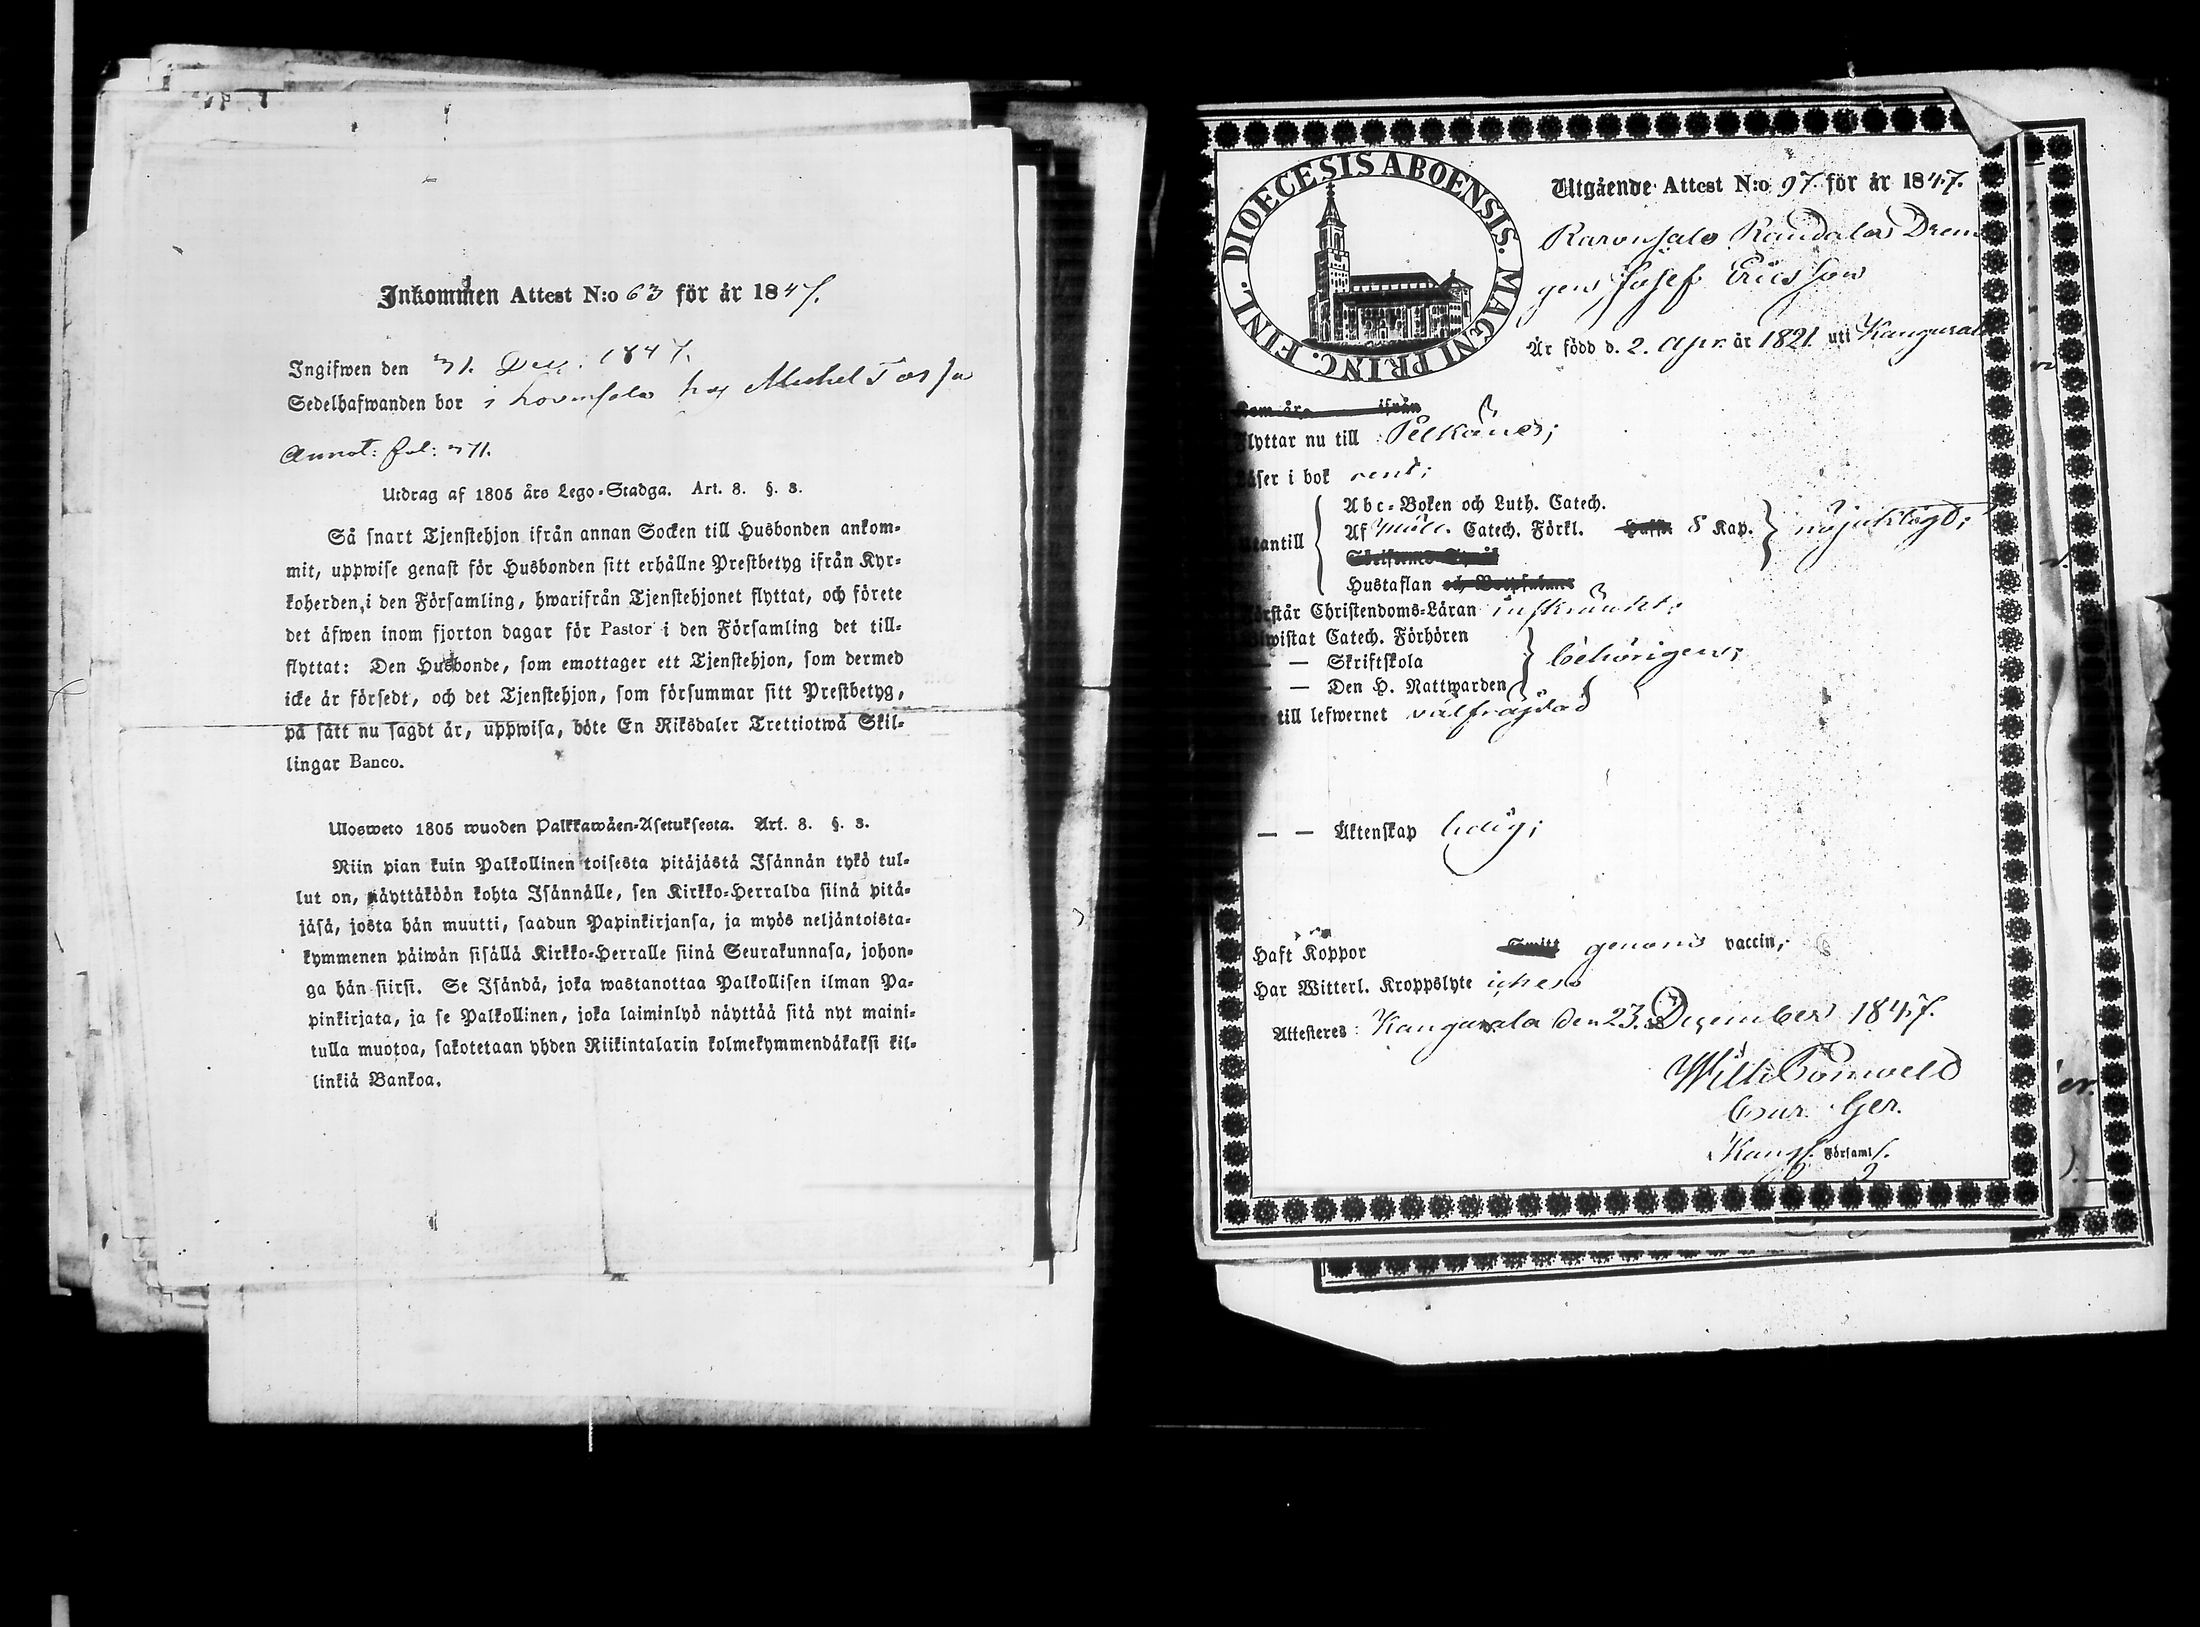 Inkommen Attest N:o 63 för år 1847.
Ingifwen den 31. Dec. 1847.
Sedelhafwanden bor i hos Michel
Annot: fol: 371.
Utdrag af 1805 års Lego-Stadga. Art. 8. §. 3.
Så snart Tjenstehjon ifrån annan Socken till Husbonden ankom-
mit, uppwise genast för Husbonden sitt erhållne Prestbetyg ifrån Kyr-
koherden i den Församling, hwarifrån Tjenstehjonet flyttat, och förete
det äfwen inom fjorton dagar för Pastor i den Församling det till-
flyttat: Den Husbonde, som emottager ett Tjenstehjon, som dermed
icke är försedt, och det Tjenstehjon, som försummar sitt Prestbetyg,
på sätt nu sagdt är, uppwisa, böte En Riksdaler Trettiotwå Skil-
lingar Banco.
Ulosweto 1805 wuoden Palkkawäen-Asetuksesta. Art. 8. §. 3.
Niin pian kuin Palkollinen toisesta pitäjästä Isännän tykö tul-
lut on, näyttäköön kohta Isännälle, sen Kirkko-Herralda siinä pitä-
jäsä, josta hän muutti, saadun Papinkirjansa, ja myös neljäntoista-
kymmenen päiwän sisällä Kirkko-Herralle siinä Seurakunnasa, johon-
ga hän siirsi. Se Isändä, joka wastanottaa Palkollisen ilman Pa-
pinkirjata, ja se Palkollinen, joka laiminlyö näyttää sitä nyt maini-
tulla muotoa, sakotetaan yhden Riikintalarin kolmekymmendäkaksi kil-
linkiä Bankoa.
DIOECESIS ABOENSIS. MAGNI PRINC. FINL.
Utgående Attest N:o 97. för år 1847.
Dren
gen Josef Ericsson
Är född d. 2. Apr. år 1821. uti Kangasala
Kom år ifrån
Flyttar nu till Pelkäne;
Läser i bok rent;
Utantill
Abc-Boken och Luth. Catech.
Af Catech. Förkl. Haft 8 Kap. nöjaktigt;
Hustaflan
Förstår Christendoms-Läran inskränkt;
Biwistat Catech. Förhören
— — Skriftskola behörigen;
— — Den H. Nattwarden
till lefwernet välfräjdad
— — Äktenskap ledig;
Haft Koppor genom vaccin;
Har Witterl. Kroppslyte
Attesteres: Kangasala den 23. December 1847.
Församl.